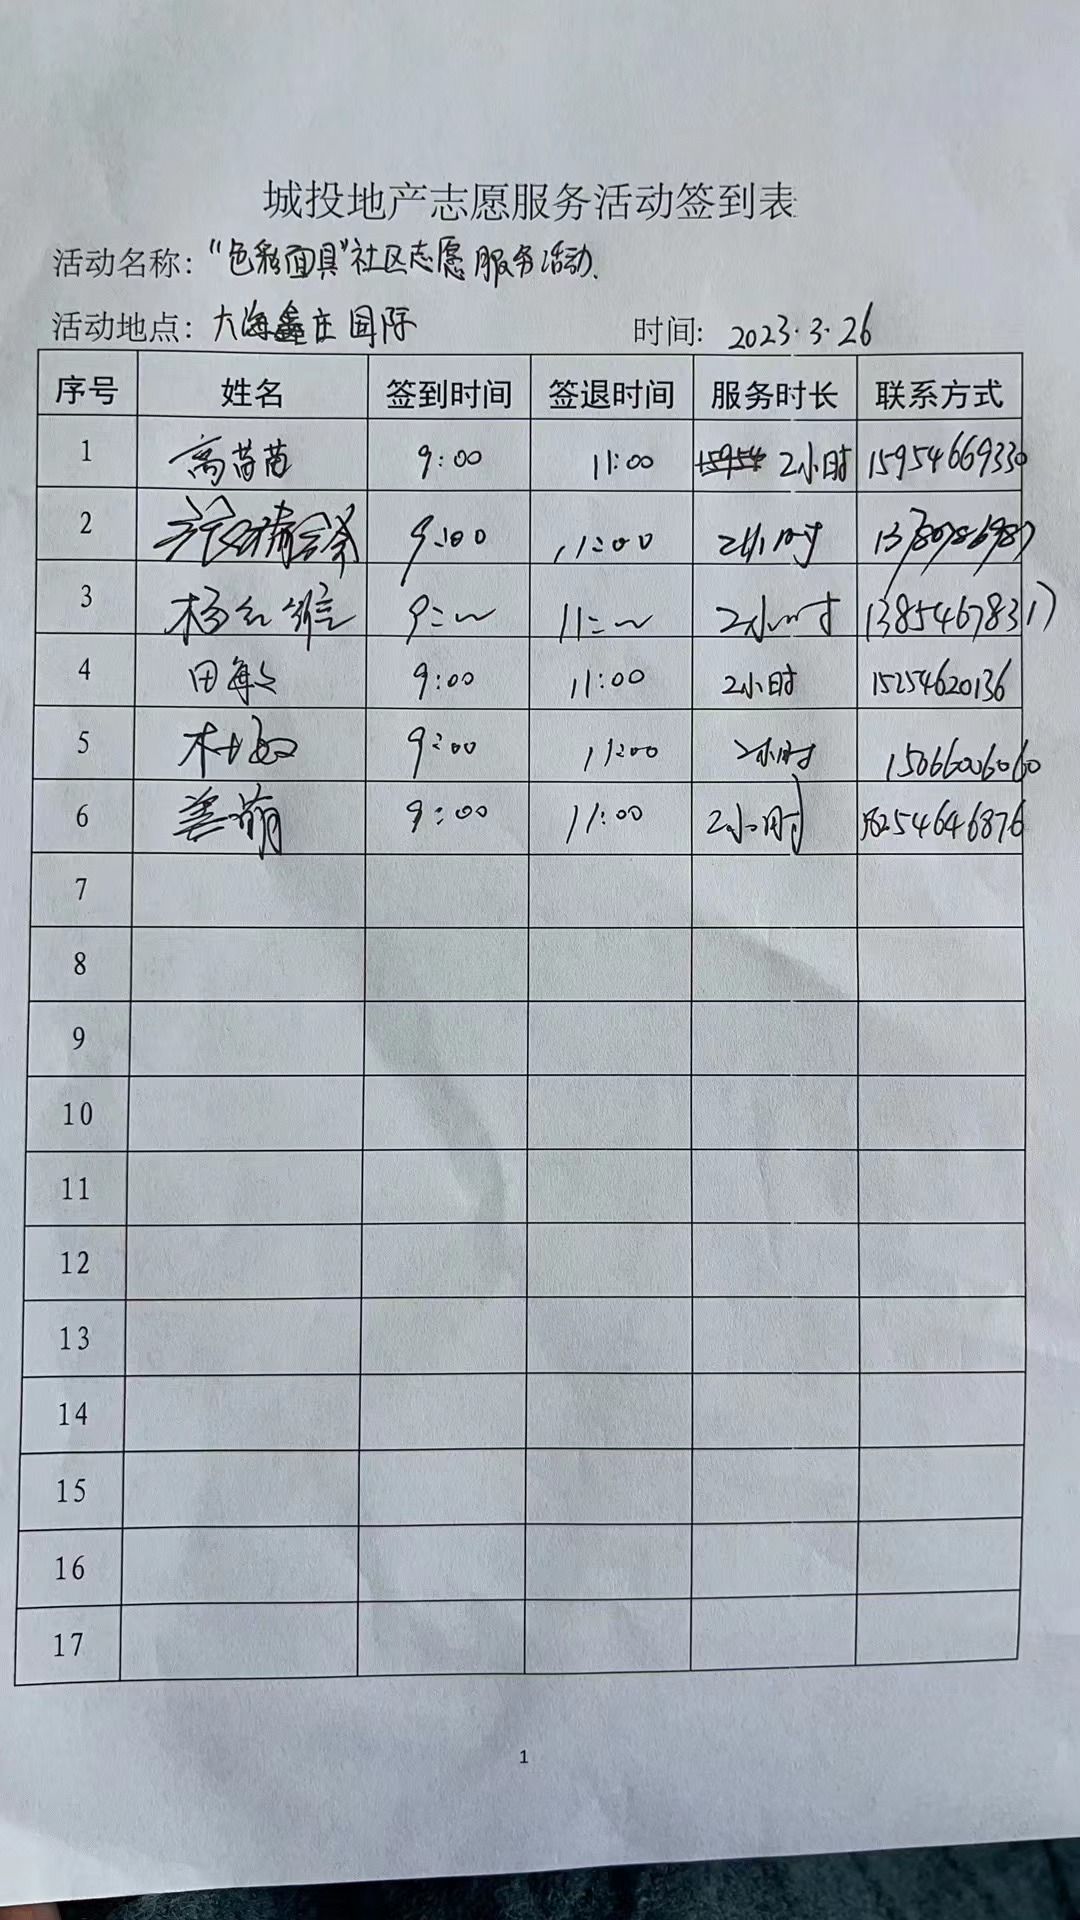 城投地产志愿服务活动签到表
活动名称：“色彩面具”社区志愿服务活动.
活动地点：大海鑫庄国际 时间: 2023.3.26
序号 姓名 签到时间 签退时间 服务时长 联系方式
1 高苗苗 9:00 11:00 2小时 15954669330
2 9:00 11:00 2小时
3 杨红 9:00 11:00 2小时 13854678317
4 田敏 9:00 11:00 2小时 15254620136
5 9:00 11:00 2小时 15066006060
6 姜萌 9:00 11:00 2小时 18254646876
7
8
9
10
11
12
13
14
15
16
17
1